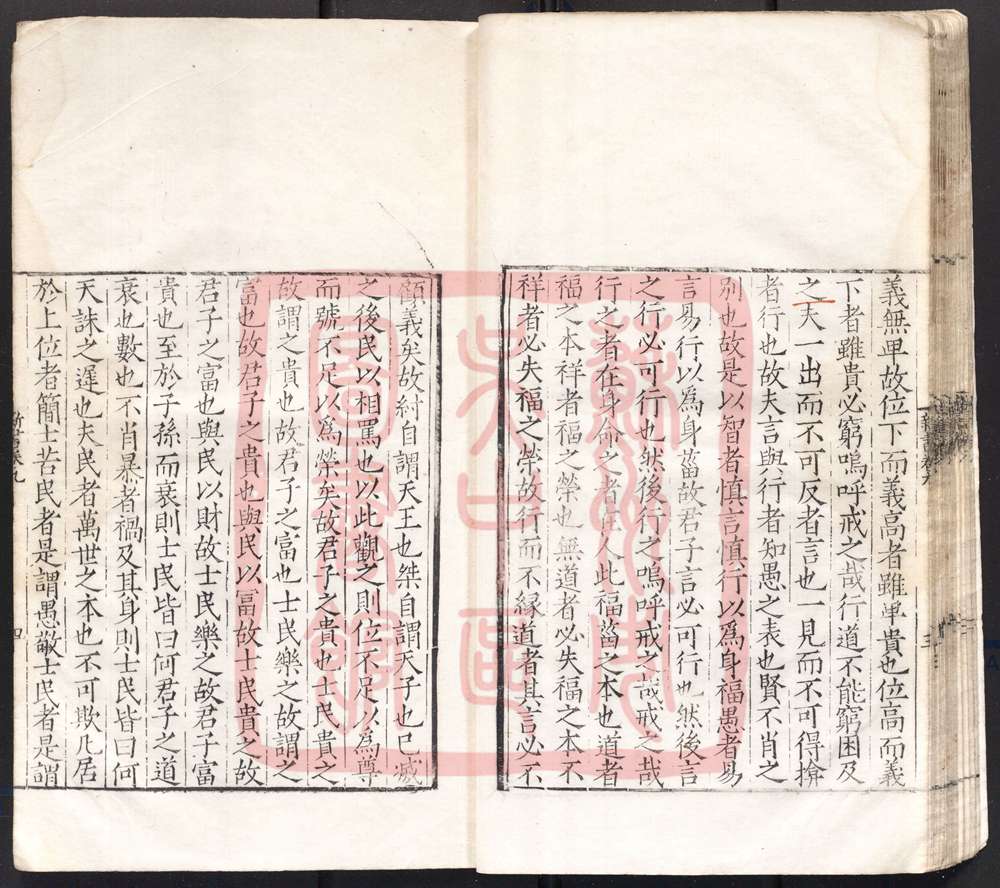 義無卑故位下而義高者雖卑貴也位高而義
下者雖貴必窮嗚呼戒之哉行道不能窮困及
之夫一出而不可反者言也一見而不可得揜
者行也故夫言與行者知愚之表也賢不肖之
别也故是以智者慎言慎行以爲身福愚者易
言易行以爲身菑故君子言必可行也然後言
之行必可行也然後行之嗚呼戒之哉戒之哉
行之者在身命之者在人此福菑之本也道者
福之本祥者福之榮也無道者必失福之本不
祥者必失福之榮故行而不緣道者其言必不
顧義矣故紂自謂天王也桀自謂天子也已滅
之後民以相罵也以此觀之則位不足以爲尊
而號不足以爲榮矣故君子之貴也士民貴之
故謂之貴也故君子之富也士民樂之故謂之
富也故君子之貴也與民以冨故士民貴之故
君子之富也與民以財故士民樂之故君子富
貴也至於子孫而衰則士民皆曰何君子之道
衰也數也不肖暴者禍及其身則士民皆曰何
天誅之遲也夫民者萬世之本也不可欺凡居
於上位者簡士苦民者是謂愚敬士民者是謂
四
蘇州市
吳中區
圖書館